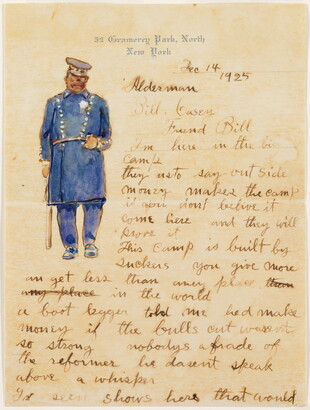 32 Gramercy Park, North
New York
Dec 14 1925
Alderman
Bill Casey
Friend Bill
I'm here in the big
camp
they us to say out side
money makes the camp
if you dont believe it
come here and they will
prove it
This camp is built by
suckers you give more
an get less than any place than
any place in the world
a boot legger told me hed make
money if the bulls out wasent
so strong nobodys afrade of
the reformer he dasent speak
above a whisper
I've seen shows here that would